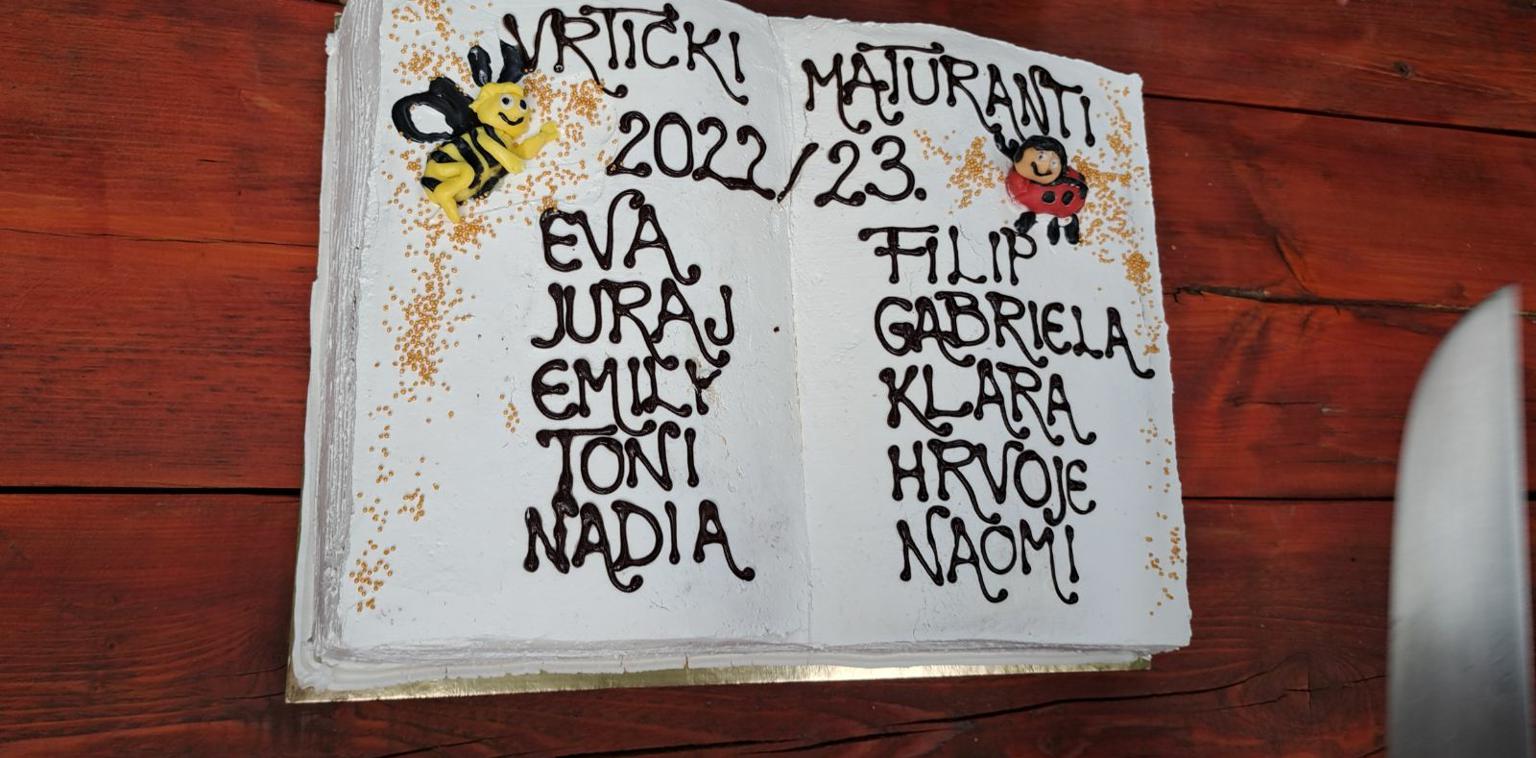 VRTIĆKI MATURANTI
2022/23.
EVA
JURAJ
EMILY
TONI
NADIA
FILIP
GABRIELA
KLARA
HRVOJE
NAOMI